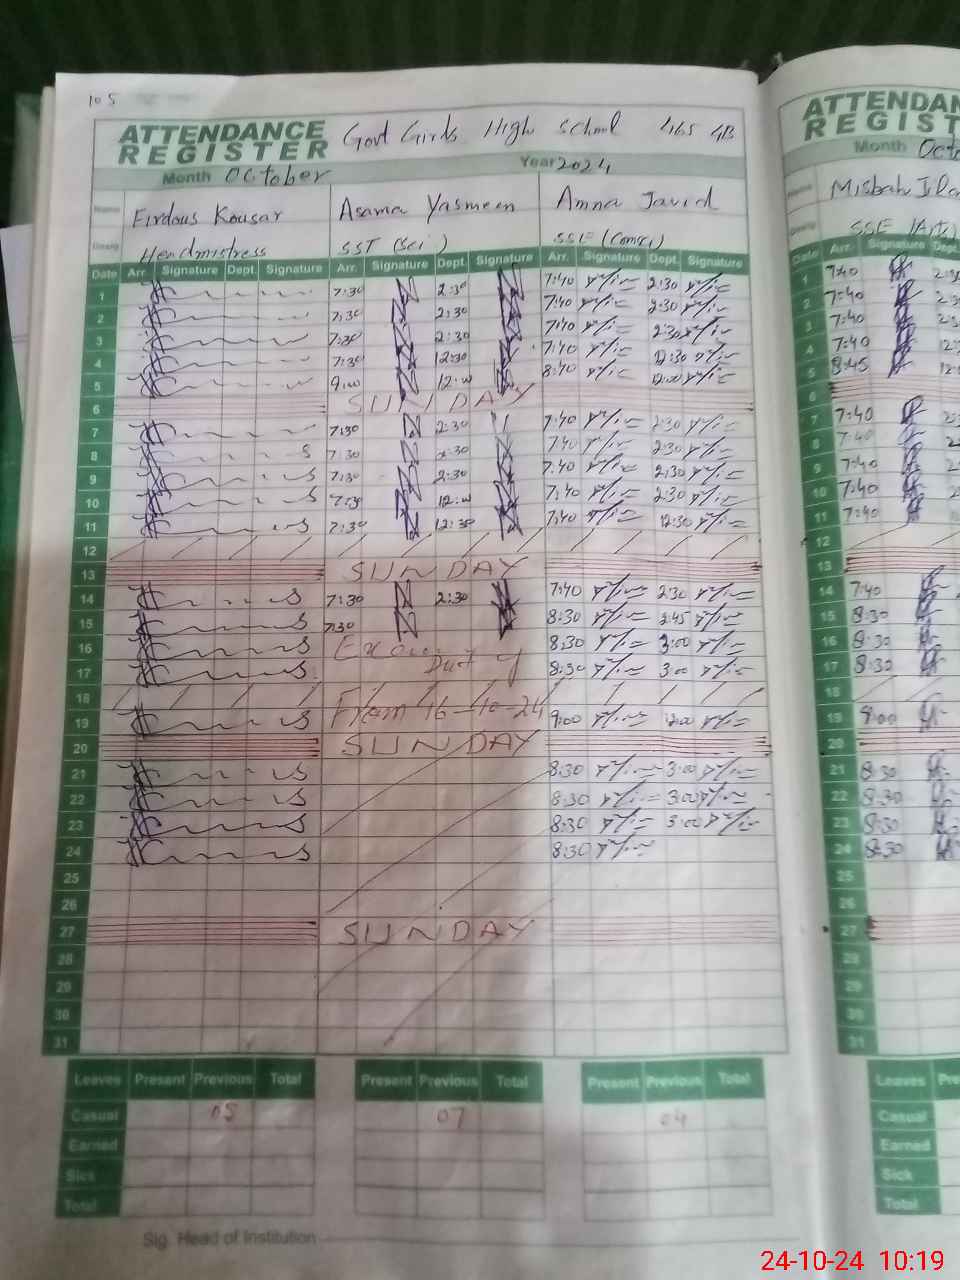 105
ATTENDANCE REGISTER Govt Girls High School 465 GB
Month October Year 2024
Name Firdous Kousar Asama Yasmeen Amna Javid
Desig Headmistress SST (Sci)
Date Arr. Signature Dept. Signature Arr. Signature Dept. Signature Arr. Signature Dept. Signature
1 7:30 2:30 7:40 2:30
2 7:30 2:30 7:40 2:30
3 7:30 2:30 7:40 2:30
4 7:30 12:30 7:40 12:30
5 9:00 12:00 8:40 12:00
6 SUNDAY
7 7:30 2:30 7:40 2:30
8 7:30 2:30 7:40 2:30
9 7:30 2:30 7:40 2:30
10 7:30 7:40 2:30
11 7:30 12:30 7:40 12:30
12
13 SUNDAY
14 7:30 2:30 7:40 2:30
15 7:30 8:30 2:45
16 8:30 3:00
17 Duty 8:30 3:00
18
19 From 16-10-24 9:00 12:00
20 SUNDAY
21 8:30 3:00
22 8:30 3:00
23 8:30 3:00
24 8:30
25
26
27 SUNDAY
28
29
30
31
Leaves Present Previous Total Present Previous Total Present Previous Total
Casual 05 07 04
Earned
Sick
Total
Sig. Head of Institution
ATTENDAN
REGIST
Month Octo
Name Misbah
Desig
Date Arr. Signature Dept.
1 7:40
2 7:40
3 7:40
4 7:40
5 8:45
6
7 7:40
8 7:40
9 7:40
10 7:40
11 7:40
12
13
14 7:40
15 8:30
16 8:30
17 8:30
18
19 9:00
20
21 8:30
22 8:30
23 8:30
24 8:30
25
26
27
28
29
30
31
Leaves Pre
Casual
Earned
Sick
Total
24-10-24 10:19